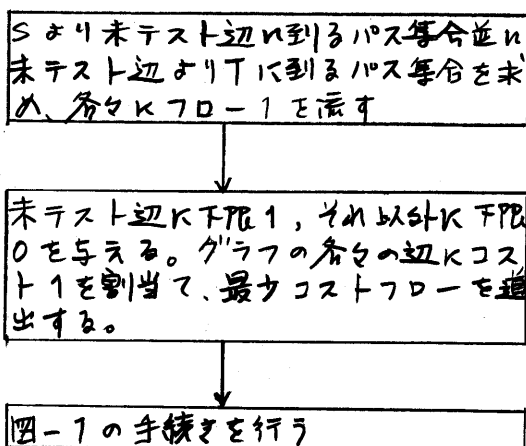 Sより未テスト辺に到るパス集合並に
未テスト辺よりTに到るパス集合を求
め、各々にフロー1を流す
未テスト辺に下限1,それ以外に下限
0を与える。グラフの各々の辺にコス
ト1を割当て、最少コストフローを導
出する。
図-1の手続きを行う